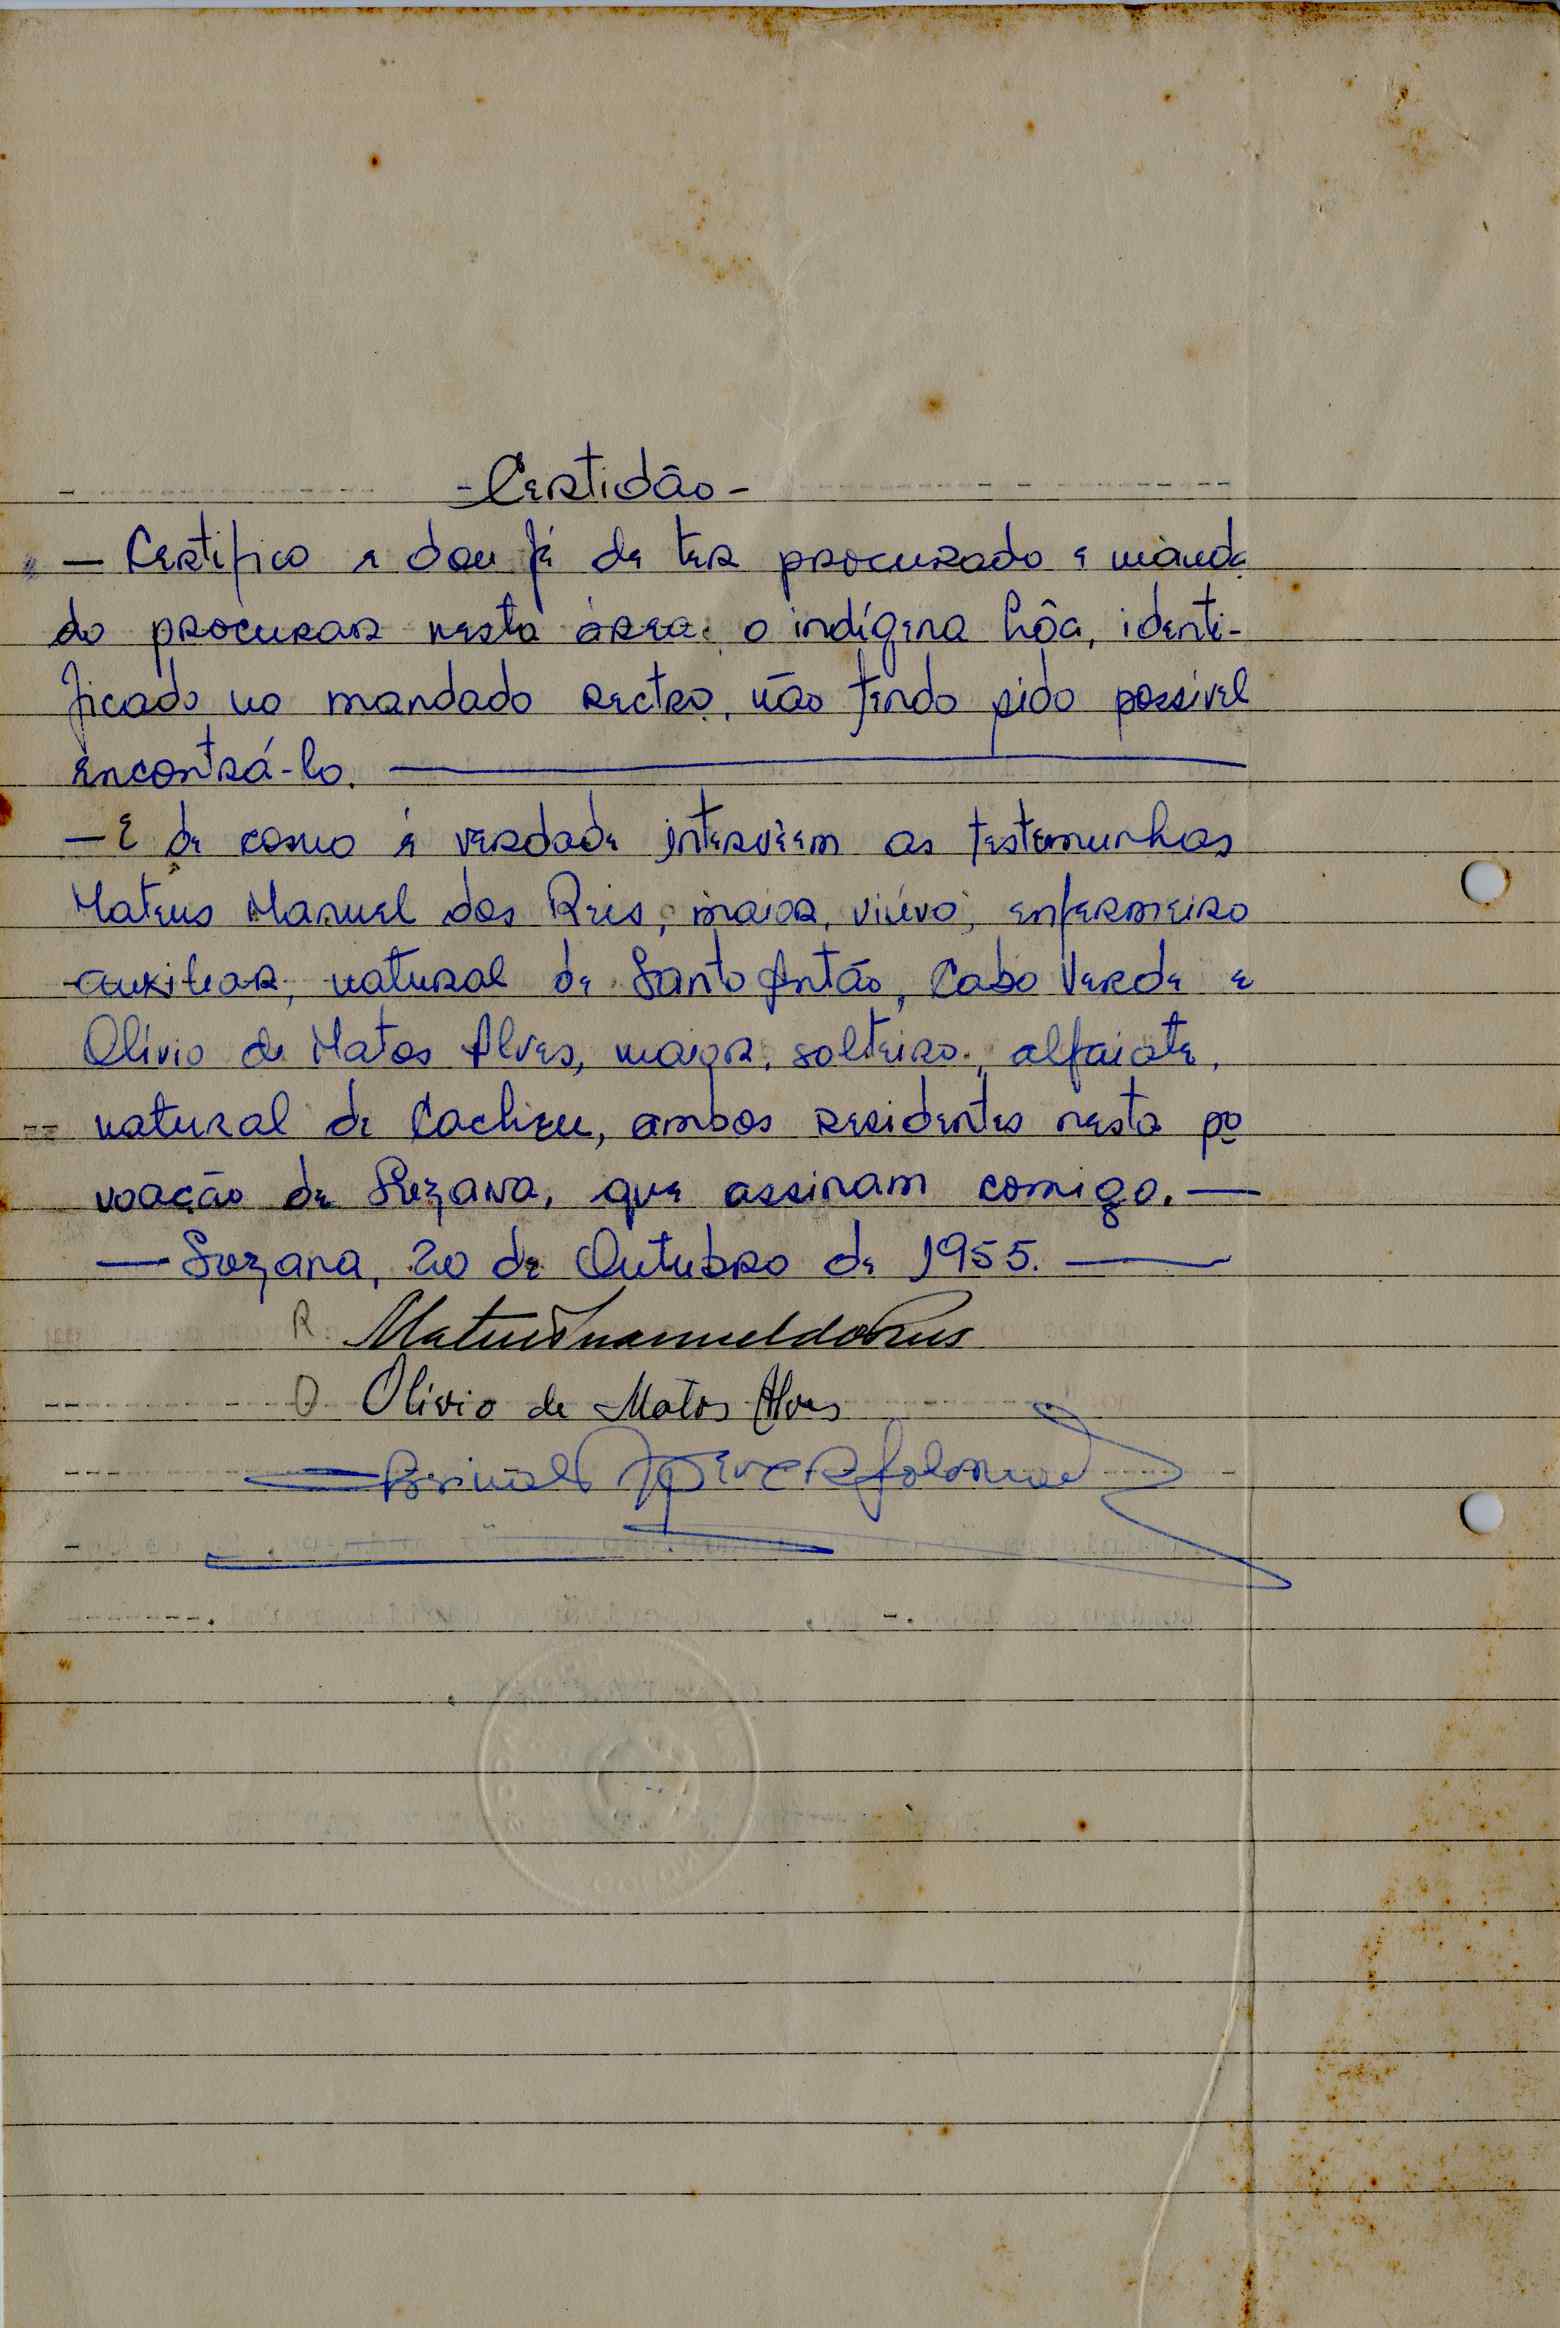 - Certidão -
— Certifico e dou fé de ter procurado e manda
do procurar nesta área o indígena Lôa, identi-
ficado no mandado rectro, não tendo sido possivel
encontrá-lo. —
— E de como é verdade intervêem as testemunhas
Mateus Manuel dos Reis, maior, viúvo, enfermeiro
auxiliar, natural de Santo Antão, Cabo Verde e
Olívio de Matos Alves, maior, solteiro, alfaiate,
natural de Cacheu, ambos residentes nesta po
voação de Suzana, que assinam comigo. —
— Suzana, 20 de Outubro de 1955. —
R. Mateus Manuel dos Reis
O Olívio de Matos Alves